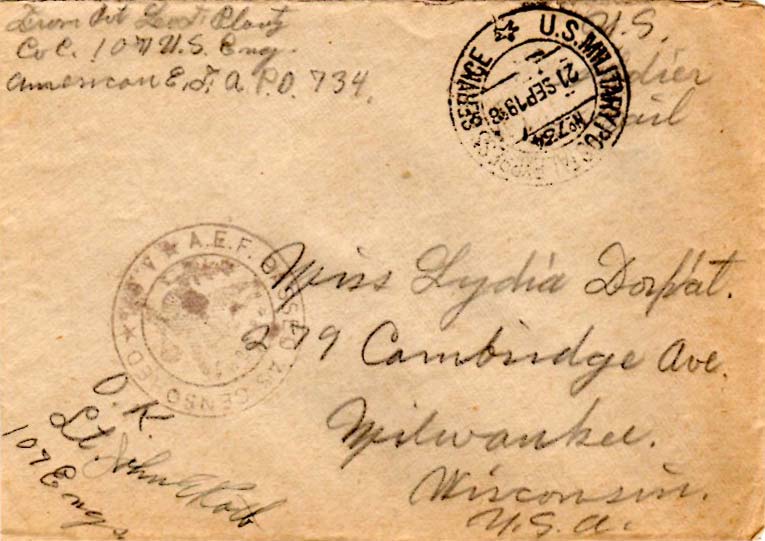 From Pvt Leo F. Plautz
Co C. 107 U.S. Eng.
American E. F. A. P.O. 734.
U.S.
Soldier
Mail
U.S. MILITARY POSTAL EXPRESS SERVICE
21 SEP 1918
No 734
A.E.F. PASSED AS CENSORED
Miss Lydia Dorpat.
279 Cambridge Ave.
Milwaukee.
Wisconsin.
U.S.A.
O.K.
Lt. John
107 Engs